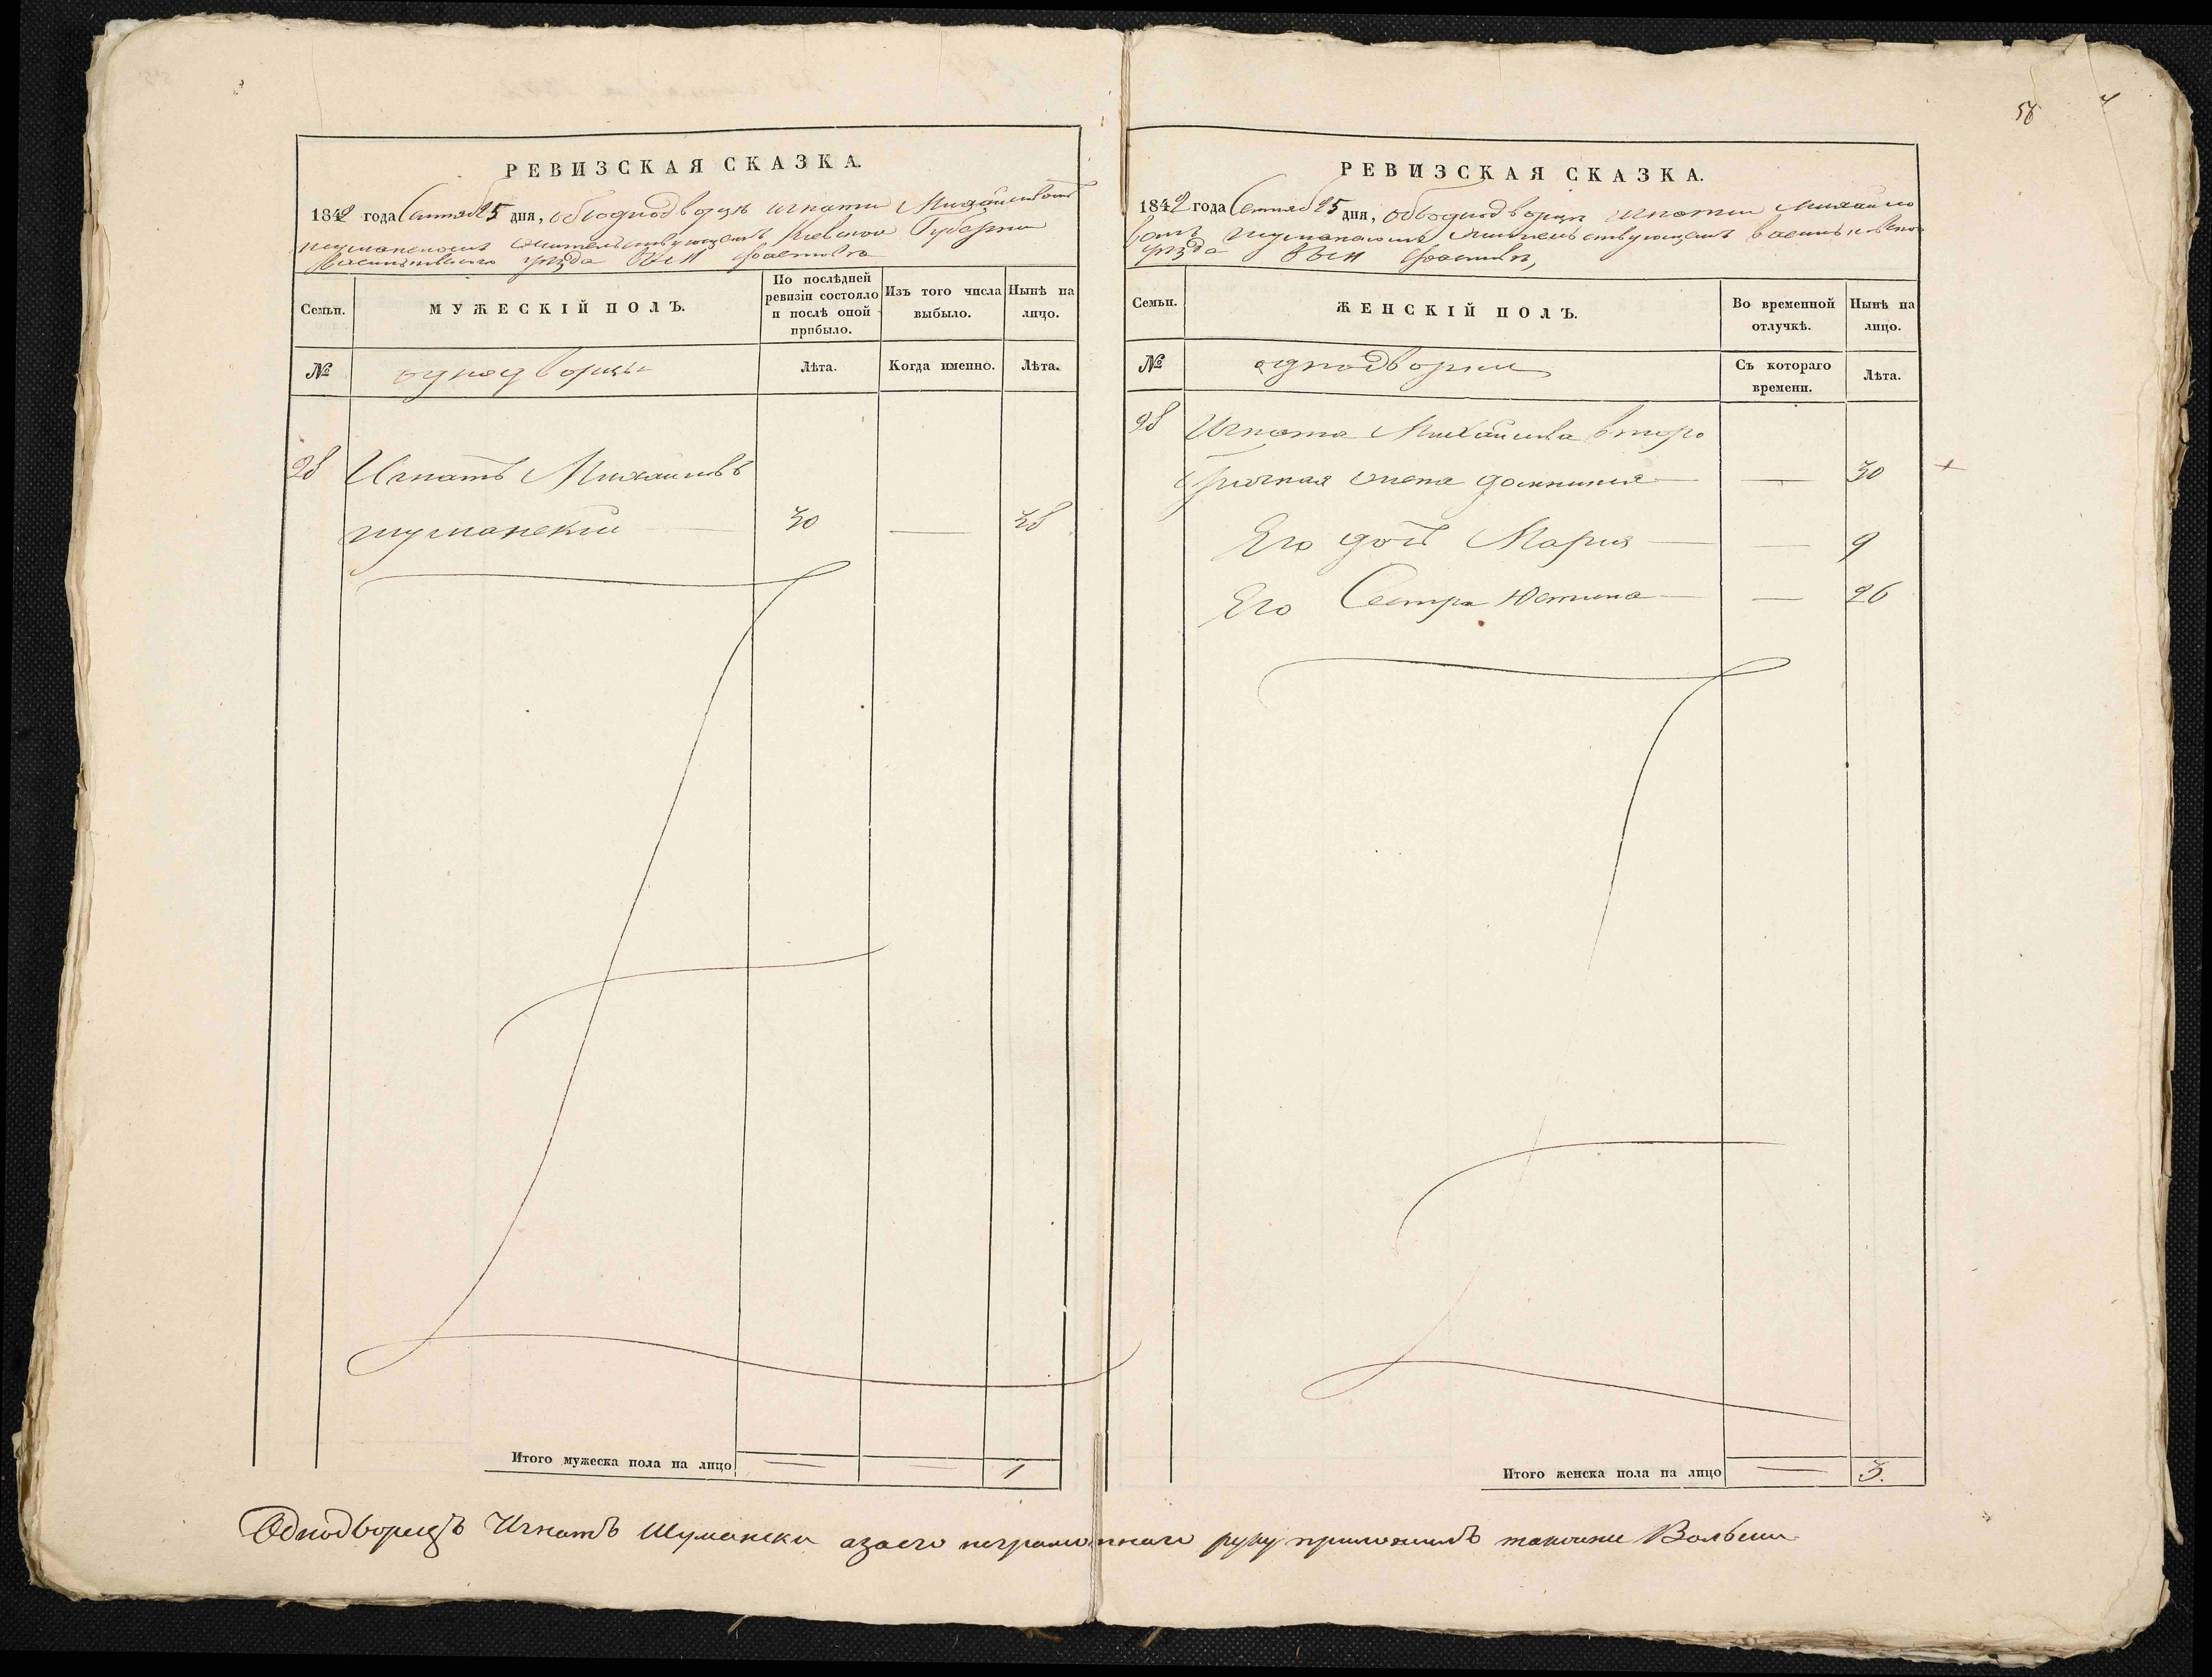 58
РЕВИЗСКАЯ СКАЗКА.
1842 года Сентяб 25 дня, объ однодворцѣ Игнатии Михайловомъ
Шуманскомъ жительствующемъ Киевской Губернии
Васильковскаго уѣзда въ м Фастовѣ
Семьи.
МУЖЕСКІЙ ПОЛЪ.
По послѣдней ревизіи состояло и послѣ оной прибыло.
Изъ того числа выбыло.
Нынѣ на лицо.
№
однодворцы
Лѣта.
Когда именно.
Лѣта.
28 Игнатъ Михайловъ
Шуманскій 30 — 38
Итого мужеска пола на лицо — — 1
РЕВИЗСКАЯ СКАЗКА.
1842 года Сентяб 25 дня, объ однодворцѣ Игнатии Михайло
вомъ Шуманскомъ жительствующемъ Васильковскаго
уѣзда въ м Фастовѣ,
Семьи.
ЖЕНСКІЙ ПОЛЪ.
Во временной отлучкѣ.
Нынѣ на лицо.
№
однодворки
Съ котораго времени.
Лѣта.
28 Игната Михайлова второ
брачная жена Домникия — 30
Его дочь Мария — 9
Его Сестра Юстина — 26
Итого женска пола на лицо — 3.
Однодворецъ Игнатъ Шумански а за его неграмотнаго руку приложилъ